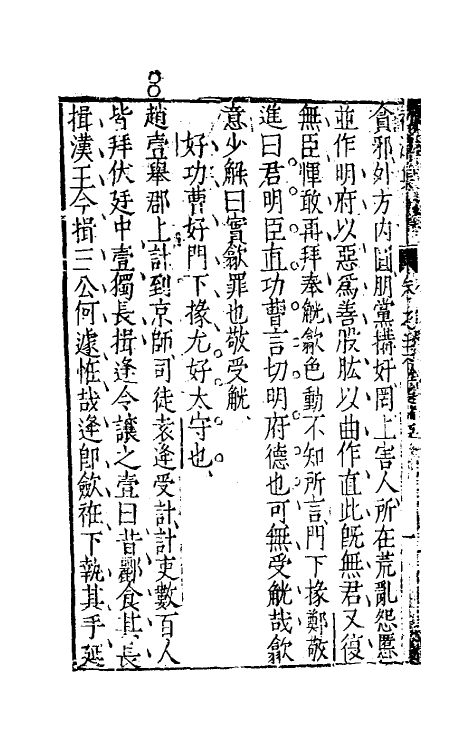 貪邪外方內圓朋黨搆奸罔上害人所在荒亂怨慝
並作明府以惡爲善股肱以曲作直此既無君又復
無臣惲敢再拜奉觥歙色動不知所言門下掾鄭敬
進曰君明臣直功曹言切明府德也可無受觥哉歙
意少解曰實歙罪也敬受觥
好功曹好門下掾尤好太守也
趙壹舉郡上計到京師司徒袁逢受計計吏數百人
皆拜伏廷中壹獨長揖逢令讓之壹曰昔酈食其長
揖漢王今揖三公何遽恠哉逢卽斂袵下執其手延